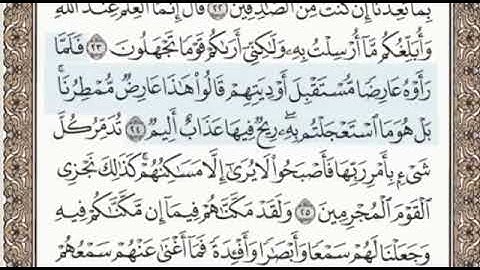 بِمَا تَعِدُنَآ إِن كُنتَ مِنَ ٱلصَّٰدِقِينَ ٢٢ قَالَ إِنَّمَا ٱلۡعِلۡمُ عِندَ ٱللَّهِ
وَأُبَلِّغُكُم مَّآ أُرۡسِلۡتُ بِهِۦ وَلَٰكِنِّيٓ أَرَىٰكُمۡ قَوۡمٗا تَجۡهَلُونَ ٢٣ فَلَمَّا
رَأَوۡهُ عَارِضٗا مُّسۡتَقۡبِلَ أَوۡدِيَتِهِمۡ قَالُواْ هَٰذَا عَارِضٞ مُّمۡطِرُنَاۚ
بَلۡ هُوَ مَا ٱسۡتَعۡجَلۡتُم بِهِۦۖ رِيحٞ فِيهَا عَذَابٌ أَلِيمٞ ٢٤ تُدَمِّرُ كُلَّ
شَيۡءِۭ بِأَمۡرِ رَبِّهَا فَأَصۡبَحُواْ لَا يُرَىٰٓ إِلَّا مَسَٰكِنُهُمۡۚ كَذَٰلِكَ نَجۡزِي
ٱلۡقَوۡمَ ٱلۡمُجۡرِمِينَ ٢٥ وَلَقَدۡ مَكَّنَّٰهُمۡ فِيمَآ إِن مَّكَّنَّٰكُمۡ فِيهِ
وَجَعَلۡنَا لَهُمۡ سَمۡعٗا وَأَبۡصَٰرٗا وَأَفۡـِٔدَةٗ فَمَآ أَغۡنَىٰ عَنۡهُمۡ سَمۡعُهُمۡ